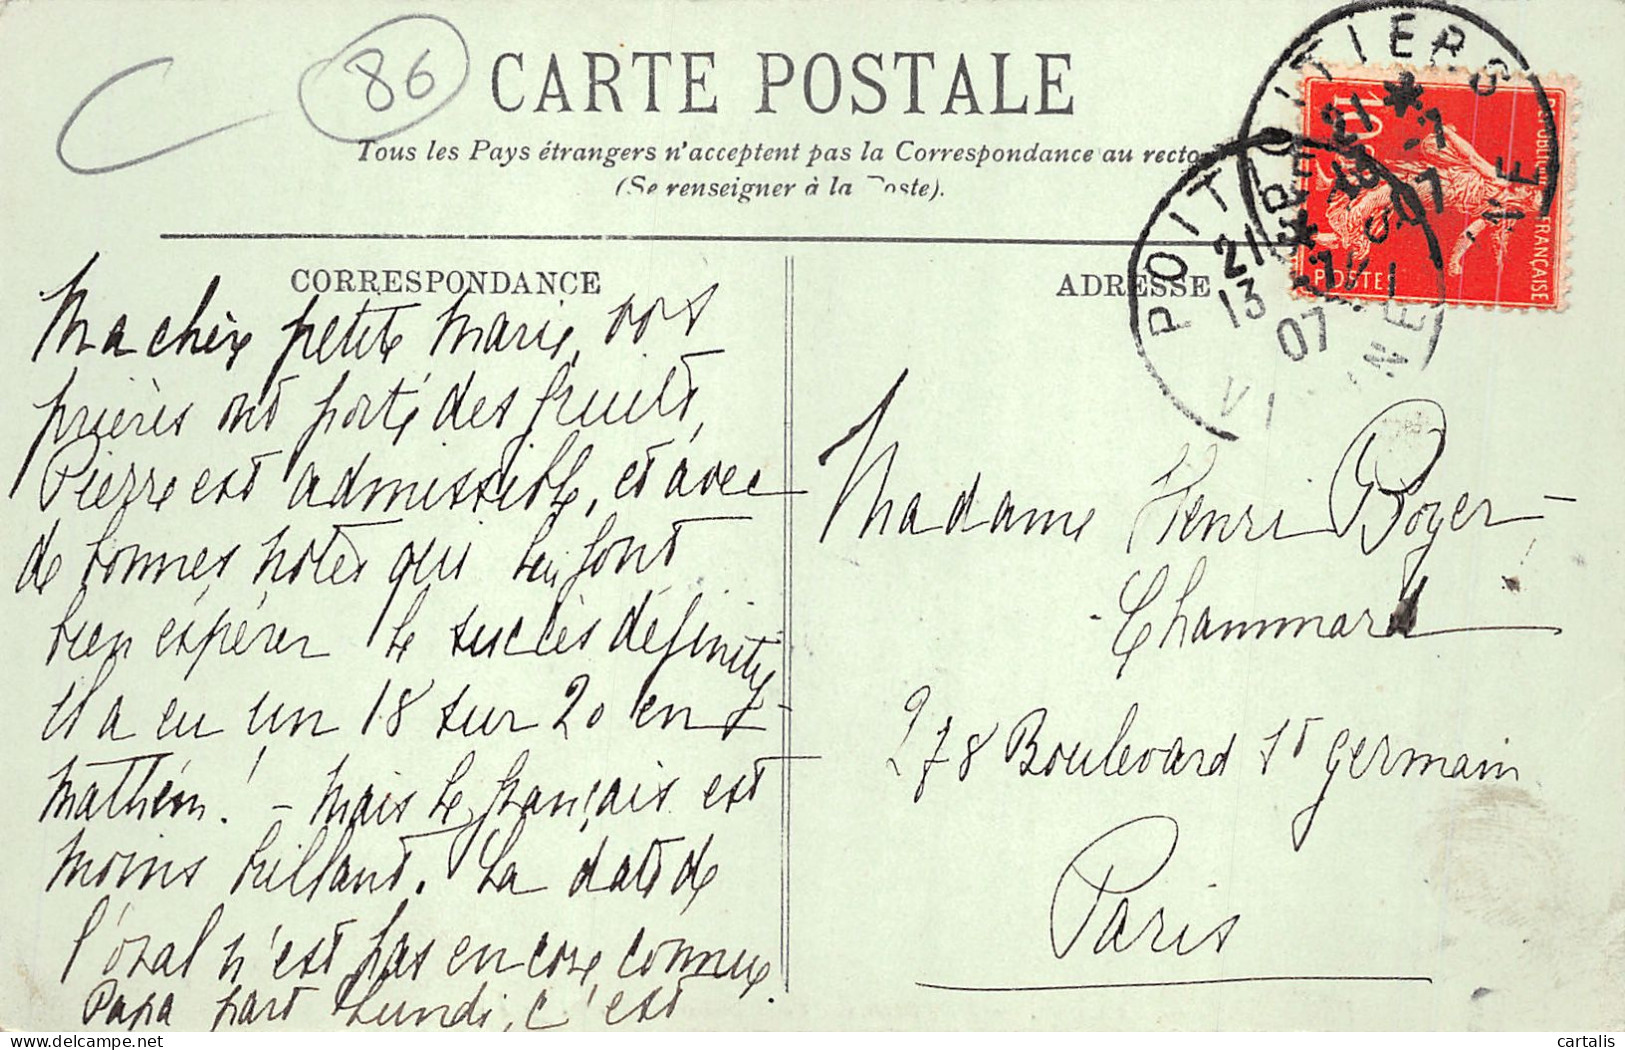 86
CARTE POSTALE
Tous les Pays étrangers n'acceptent pas la Correspondance au recto
(Se renseigner à la Poste).
CORRESPONDANCE
Ma chère petite Marie, vos
prières ont porté des fruits,
Pierre est admissible, et avec
de bonnes notes qui lui font
bien espérer le succès définitif
il a eu un 18 sur 20 en
mathém! - Mais le français est
moins brillant. La date de
l'oral n'est pas encore connue.
Papa part Lundi, c'est
ADRESSE
Madame Henri Boyer
Chammard
278 Boulevard St germain
Paris
POITIERS
21 *
13 -7
07
VIENNE
POITIERS
21 *
13 -7
07
VIENNE
10
POSTES
FRANÇAISE
cartalis